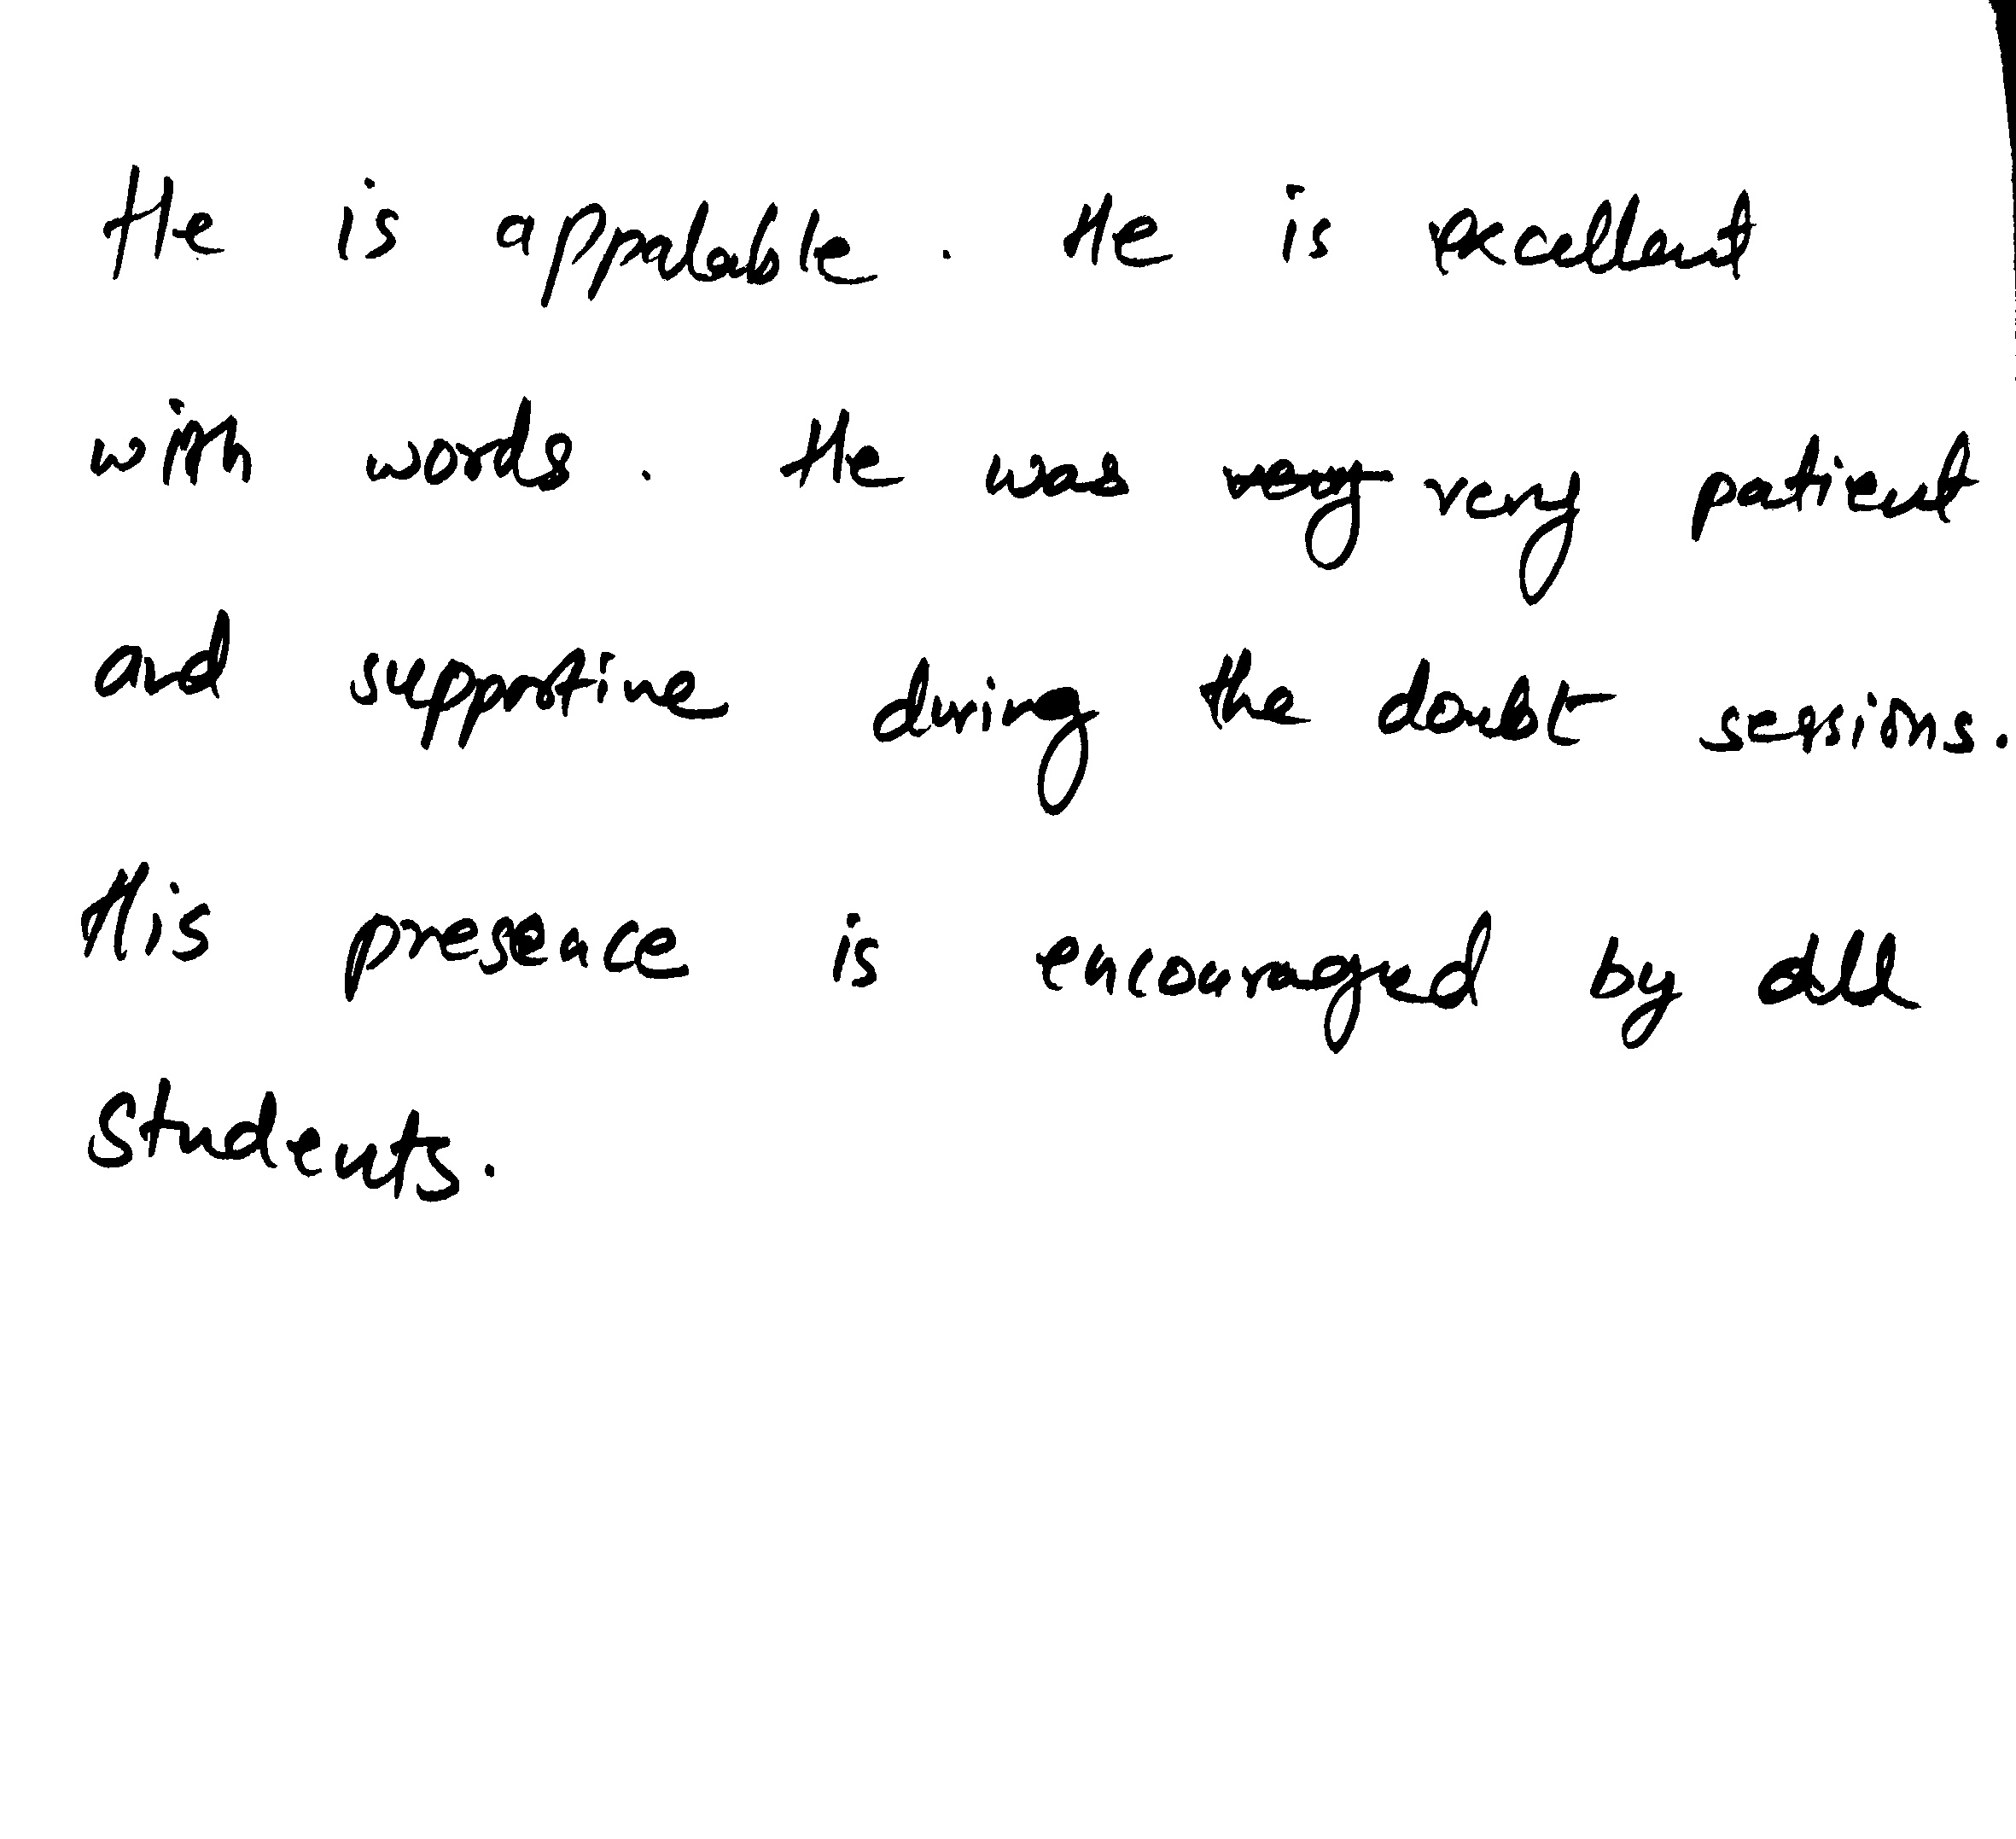 He is appalable. He is excellent
with words. He was very very patient
and supportive during the doubt sessions.
His presence is encouraged by all
students.